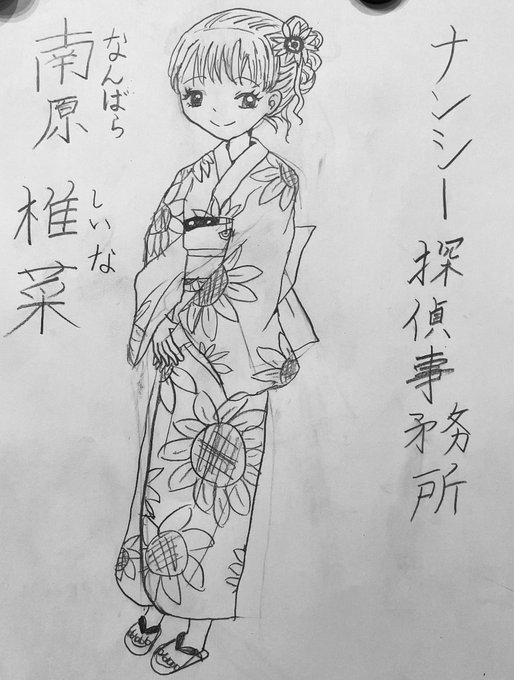 ナンシー探偵事務所
なんばら
南原
しいな
椎菜